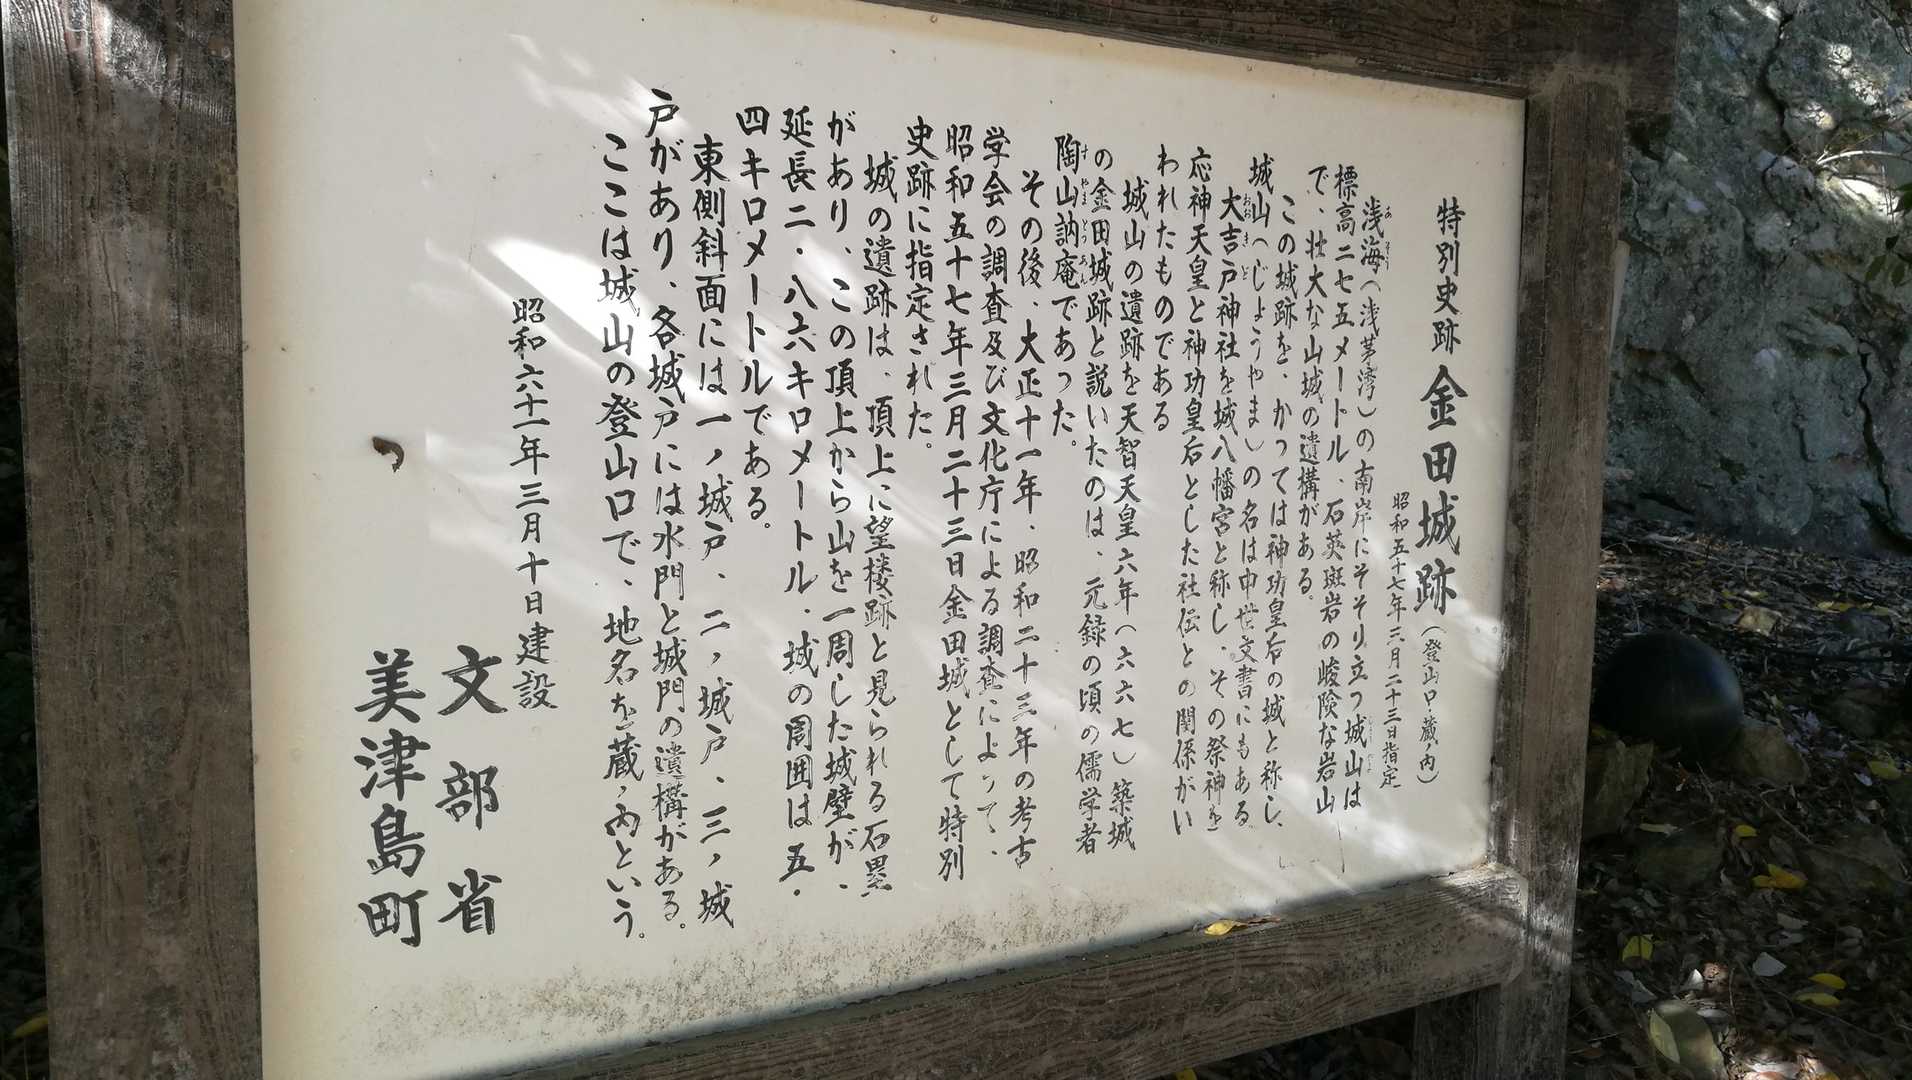 特別史跡 金田城跡（登山口・蔵ノ内）
昭和五十七年三月二十三日指定
浅海（浅茅湾）の南岸にそそり立つ城山は
標高二七五メートル、石英斑岩の峻険な岩山
で、壮大な山城の遺構がある。
この城跡を、かつては神功皇后の城と称し、
城山（じょうやま）の名は中世文書にもある
大吉戸神社を城八幡宮と称し、その祭神を
おおきど
応神天皇と神功皇后とした社伝との関係がい
われたものである
城山の遺跡を天智天皇六年（六六七）築城
の金田城跡と説いたのは、元録の頃の儒学者
陶山訥庵であった。
すやまとつあん
その後、大正十一年、昭和二十三年の考古
学会の調査及び文化庁による調査によって、
昭和五十七年三月二十三日金田城として特別
史跡に指定された。
城の遺跡は、頂上に望楼跡と見られる石塁
があり、この頂上から山を一周した城壁が、
延長二・八六キロメートル、城の周囲は五・
四キロメートルである。
東側斜面には一ノ城戸、二ノ城戸、三ノ城
戸があり、各城戸には水門と城門の遺構がある。
ここは城山の登山口で、地名を蔵ノ内という。
昭和六十一年三月十日建設
文部省
美津島町